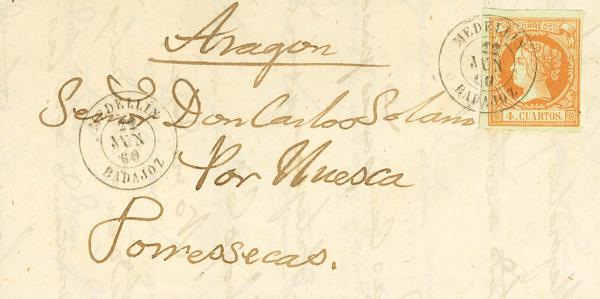 Aragon
Señor Don Carlos Solano
Por Huesca
Porressecas.
MEDELLIN
22
JUN
60
BADAJOZ
MEDELLIN
22
JUN
60
BADAJOZ
CORREOS
4 CUARTOS.